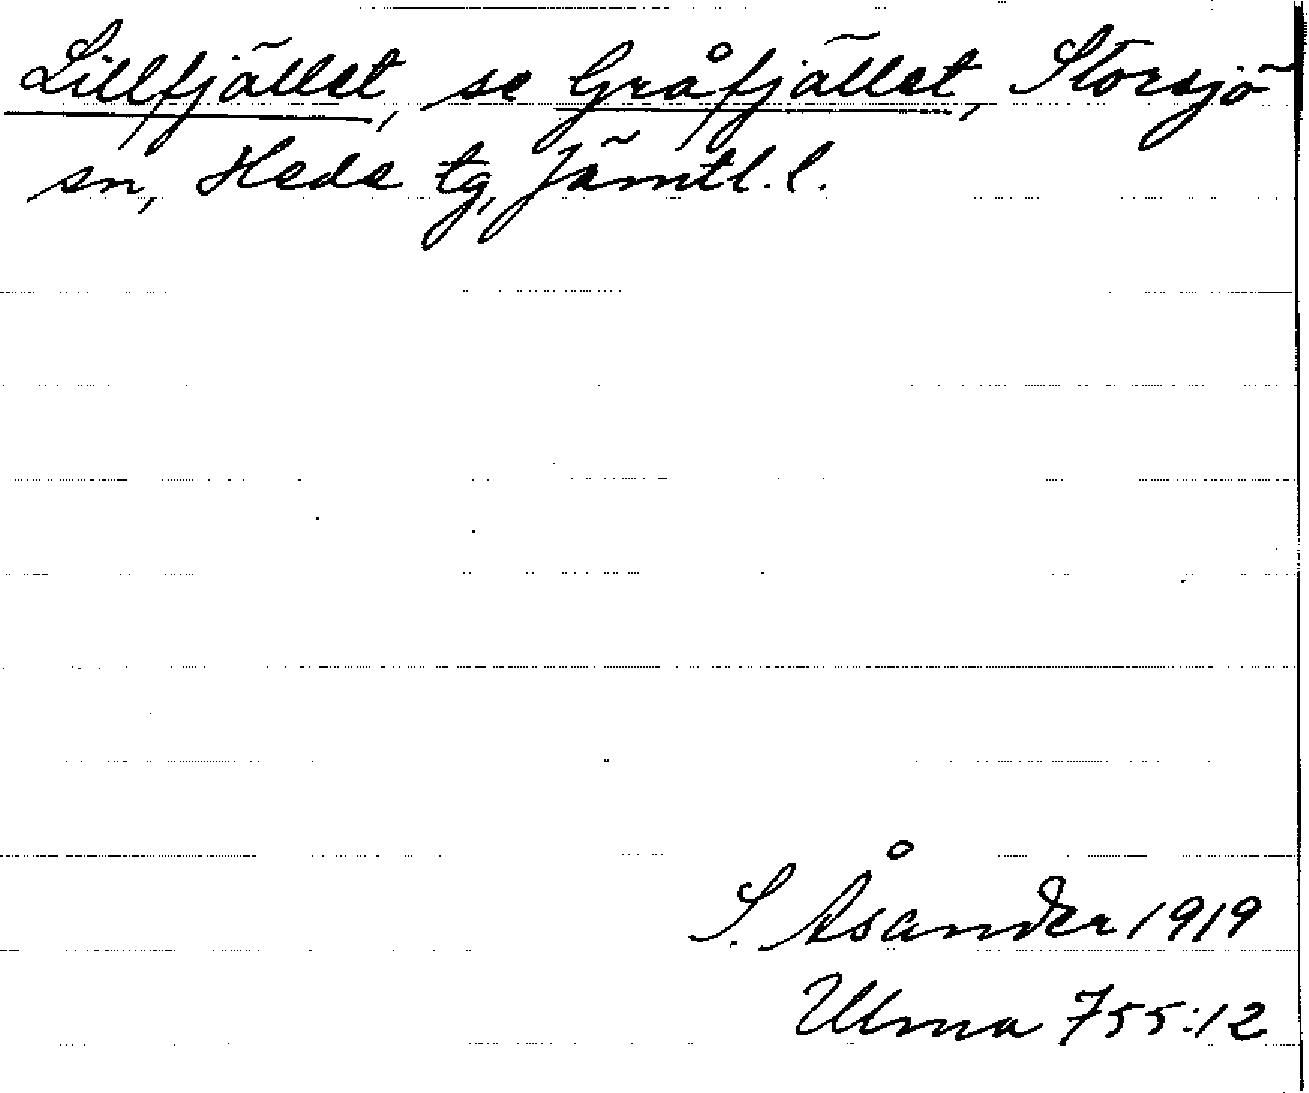 Lillfjället, se Gråfjället, Storsjö
sn, Hede tg, Jämtl. l.
S. Åsander 1919
Ulma 755:12